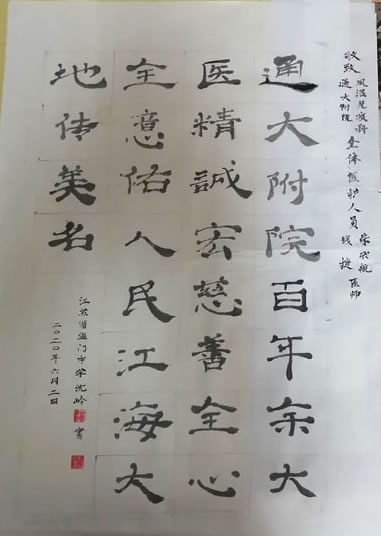 敬致
通大附院
风湿免疫科
全体医护人员
钱捷医师
通大附院百年余大
医精誠宏慈善全心
全意佑人民江海大
地传美名
江苏省海门中学沈岭书
二〇二〇年六月二日